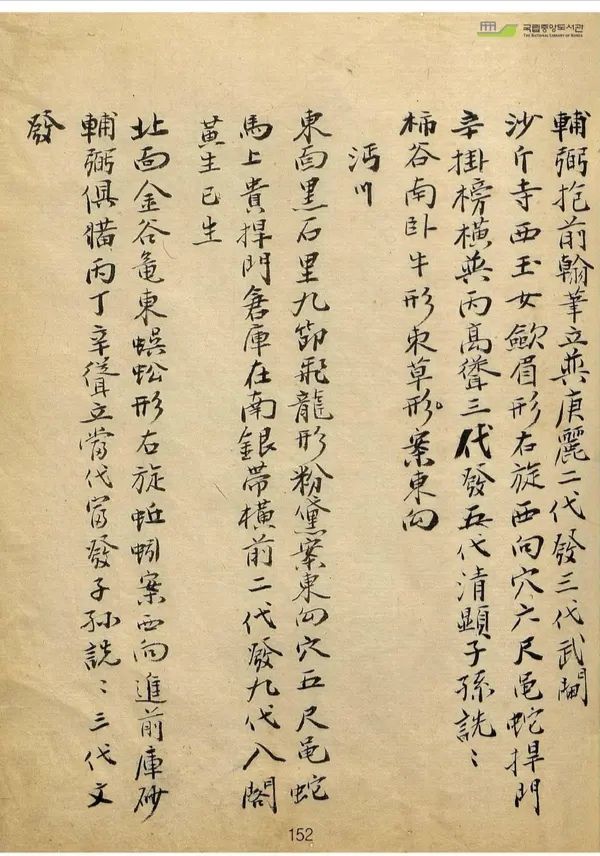 국립중앙도서관
THE NATIONAL LIBRARY OF KOREA
輔弼抱前翰華立與庚麗二代發三代武閫
沙斤寺西玉女斂眉形右旋西向穴六尺黾蛇捍門
辛掛榜橫與丙高聳三代發五代清顯子孫詵〻
柿谷南卧牛形束草形案東向
沔川
東面黑石里九節飛龍形粉黛案東向穴五尺黾蛇
馬上貴捍門倉庫在南銀帶橫前二代發九代八閣
黃生巳生
北面金谷亀東蜈蚣形右旋蚯蚓案西向進前庫砂
輔弼俱猫丙丁辛聳立當代富發子孫詵〻三代文
發
152